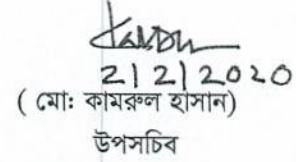 2/2/2020
( মো: কামরুল হাসান)
উপসচিব